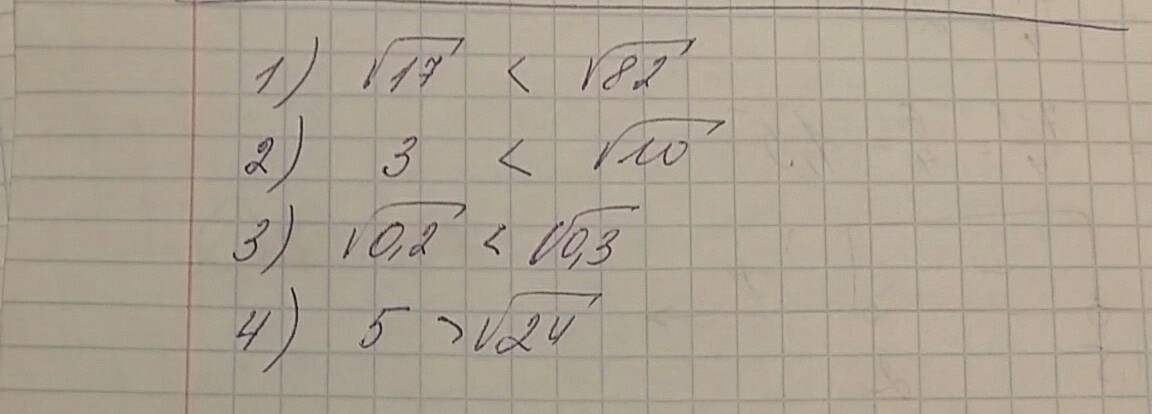 1) √17 < √82
2) 3 < √10
3) √0,2 < √0,3
4) 5 > √24